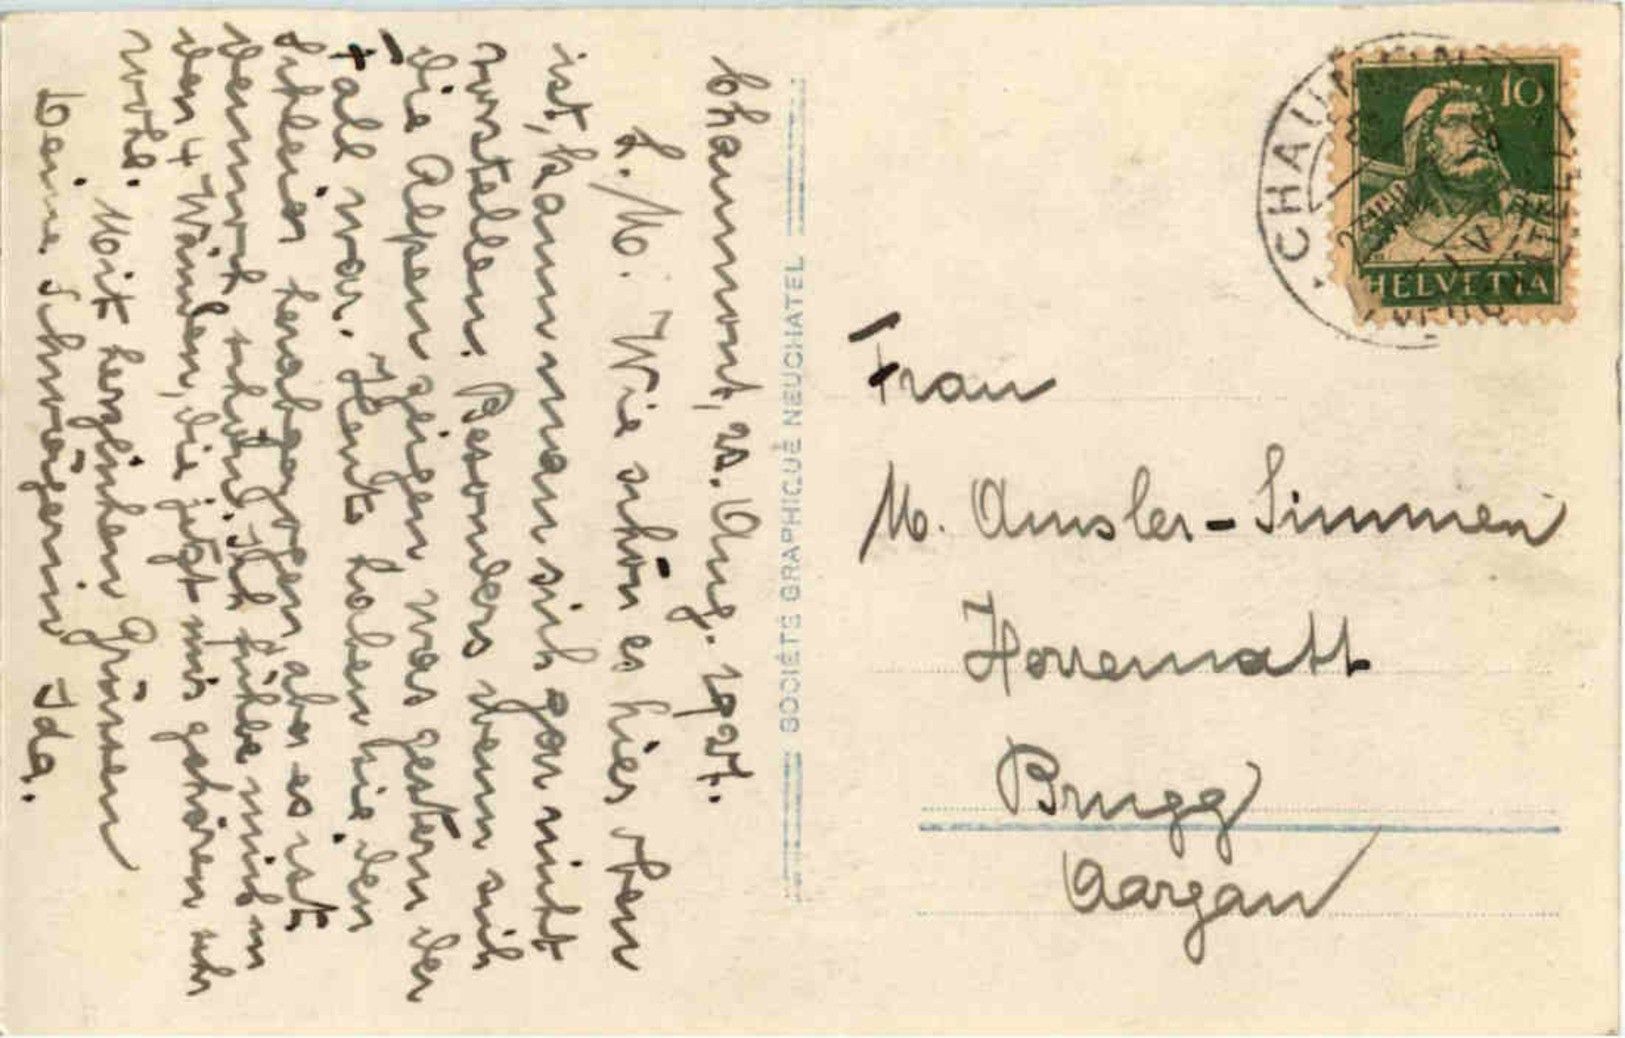 Chaumont, 23. Aug. 1927.
L. M. Wie schön es hier oben
ist, kann man sich gar nicht
vorstellen. Besonders wenn sich
die Alpen zeigen was gestern der
Fall war. Heute haben sie den
Schleier heraufgezogen, aber es ist
dennoch schön. Ich fühle mich in
den 4 Wänden, die jetzt mir gehören sehr
wohl. Mit herzlichen Grüssen
Deine Schwägerin Ida.
SOCIÉTÉ GRAPHIQUE NEUCHATEL
CHAUMONT
10
HELVETIA
Frau
M. Amsler-Simmen
Horrematt
Brugg
Aargau